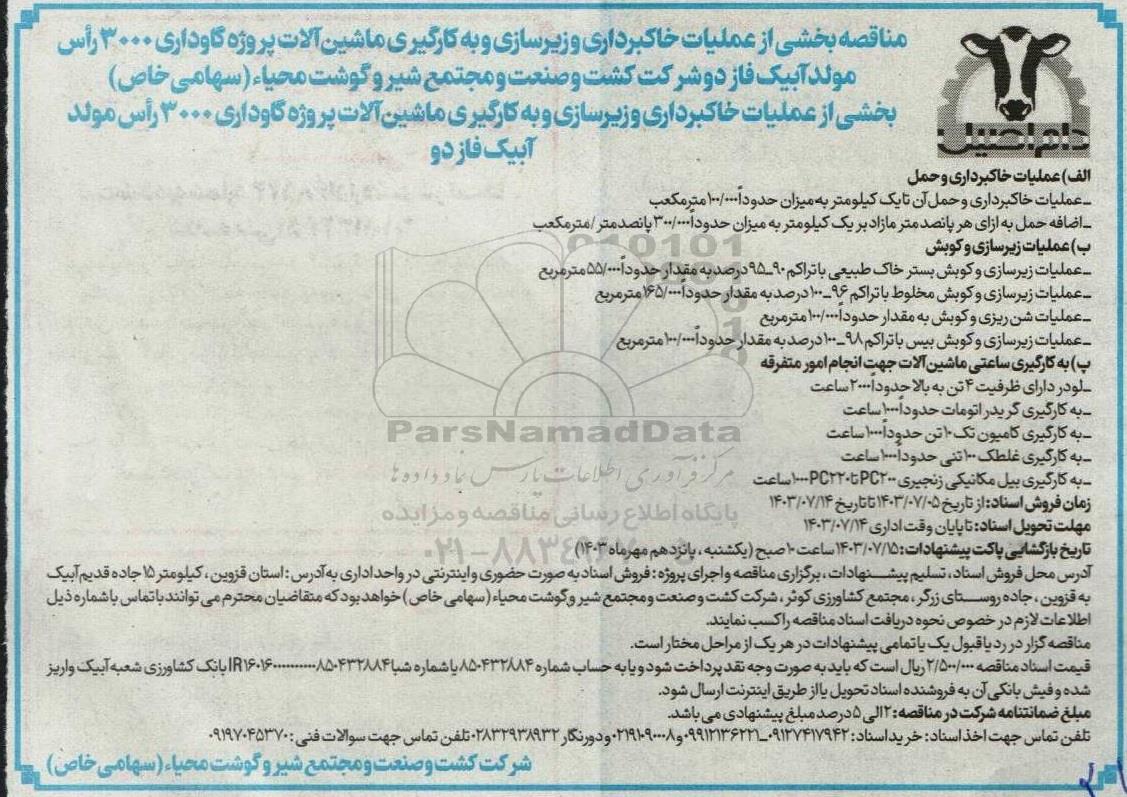 مناقصه بخشی از عملیات خاکبرداری و زیرسازی و به کارگیری ماشین آلات پروژه گاوداری ۳۰۰۰ رأس
مولد آبیک فاز دو شرکت کشت و صنعت و مجتمع شیر و گوشت محیاء (سهامی خاص)
بخشی از عملیات خاکبرداری و زیرسازی و به کارگیری ماشین آلات پروژه گاوداری ۳۰۰۰ رأس مولد
آبیک فاز دو
دام اصیل
الف) عملیات خاکبرداری و حمل
ـ عملیات خاکبرداری و حمل آن تا یک کیلومتر به میزان حدوداً ۱۰۰/۰۰۰ مترمکعب
ـ اضافه حمل به ازای هر پانصد متر مازاد بر یک کیلومتر به میزان حدوداً ۳۰۰/۰۰۰ پانصدمتر /مترمکعب
ب) عملیات زیرسازی و کوبش
ـ عملیات زیرسازی و کوبش بستر خاک طبیعی با تراکم ۹۰ـ۹۵ درصد به مقدار حدوداً ۵۵/۰۰۰ مترمربع
ـ عملیات زیرسازی و کوبش مخلوط با تراکم ۹۶ـ۱۰۰ درصد به مقدار حدوداً ۱۶۵/۰۰۰ مترمربع
ـ عملیات شن ریزی و کوبش به مقدار حدوداً ۱۰۰/۰۰۰ مترمربع
ـ عملیات زیرسازی و کوبش بیس با تراکم ۹۸ـ۱۰۰ درصد به مقدار حدوداً ۱۰۰/۰۰۰ مترمربع
پ) به کارگیری ساعتی ماشین آلات جهت انجام امور متفرقه
ـ لودر دارای ظرفیت ۴ تن به بالا حدوداً ۲۰۰۰ ساعت
ـ به کارگیری گریدر اتومات حدوداً ۱۰۰۰ ساعت
ـ به کارگیری کامیون تک ۱۰ تن حدوداً ۱۰۰۰ ساعت
ـ به کارگیری غلطک ۱۰۰ تنی حدوداً ۱۰۰۰ ساعت
ـ به کارگیری بیل مکانیکی زنجیری PC۲۰۰ تا PC۲۲۰ ۱۰۰۰ ساعت
زمان فروش اسناد: از تاریخ ۱۴۰۳/۰۷/۰۵ تا تاریخ ۱۴۰۳/۰۷/۱۴
مهلت تحویل اسناد: تا پایان وقت اداری ۱۴۰۳/۰۷/۱۴
تاریخ بازگشایی پاکت پیشنهادات: ۱۴۰۳/۰۷/۱۵ ساعت ۱۰ صبح (یکشنبه ، پانزدهم مهرماه ۱۴۰۳)
آدرس محل فروش اسناد ، تسلیم پیشنهادات ، برگزاری مناقصه و اجرای پروژه : فروش اسناد به صورت حضوری و اینترنتی در واحد اداری به آدرس : استان قزوین ، کیلومتر ۱۵ جاده قدیم آبیک
به قزوین ، جاده روستای زرگر ، مجتمع کشاورزی کوثر ، شرکت کشت و صنعت و مجتمع شیر و گوشت محیاء (سهامی خاص) خواهد بود که متقاضیان محترم می توانند با تماس با شماره ذیل
اطلاعات لازم در خصوص نحوه دریافت اسناد مناقصه را کسب نمایند.
مناقصه گزار در رد یا قبول یک یا تمامی پیشنهادات در هر یک از مراحل مختار است.
قیمت اسناد مناقصه ۲/۵۰۰/۰۰۰ ریال است که باید به صورت وجه نقد پرداخت شود و یا به حساب شماره ۸۵۰۴۳۲۸۸۴ با شماره شبا بانک کشاورزی شعبه آبیک واریز
شده و فیش بانکی آن به فروشنده اسناد تحویل یا از طریق اینترنت ارسال شود.
مبلغ ضمانتنامه شرکت در مناقصه: ۲ الی ۵ درصد مبلغ پیشنهادی می باشد.
تلفن تماس جهت اخذ اسناد : خرید اسناد : ۰۹۱۲۷۴۱۷۹۴۲ـ۰۹۹۱۲۱۳۶۲۲۱ و ۰۲۱۹۱۰۹۰۰۰۸ و دورنگار ۰۲۸۳۲۹۳۸۹۳۲ تلفن تماس جهت سوالات فنی : ۰۹۱۹۷۰۴۵۳۷۰
شرکت کشت و صنعت و مجتمع شیر و گوشت محیاء (سهامی خاص)
ParsNamadData
مرکز فرآوری اطلاعات پارس نماد داده ها
پایگاه اطلاع رسانی مناقصه و مزایده